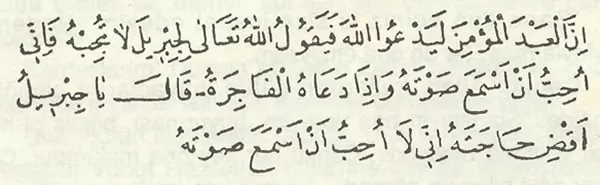 اِنَّ الْعَبْدَ الْمُؤْمِنَ لَيَدْعُوا اللّٰهَ فَيَقُولُ اللّٰهُ تَعَالٰى لِجِبْرِيلَ لَا تُجِبْهُ فَاِنّ۪ي
اُحِبُّ اَنْ اَسْمَعَ صَوْتَهُ وَاِذَا دَعَاهُ الْفَاجِرَةُ ـ قَالَ يَا جِبْر۪يلُ
اَقْضِ حَاجَتَهُ اِنّ۪ي لَا اُحِبُّ اَنْ اَسْمَعَ صَوْتَهُ